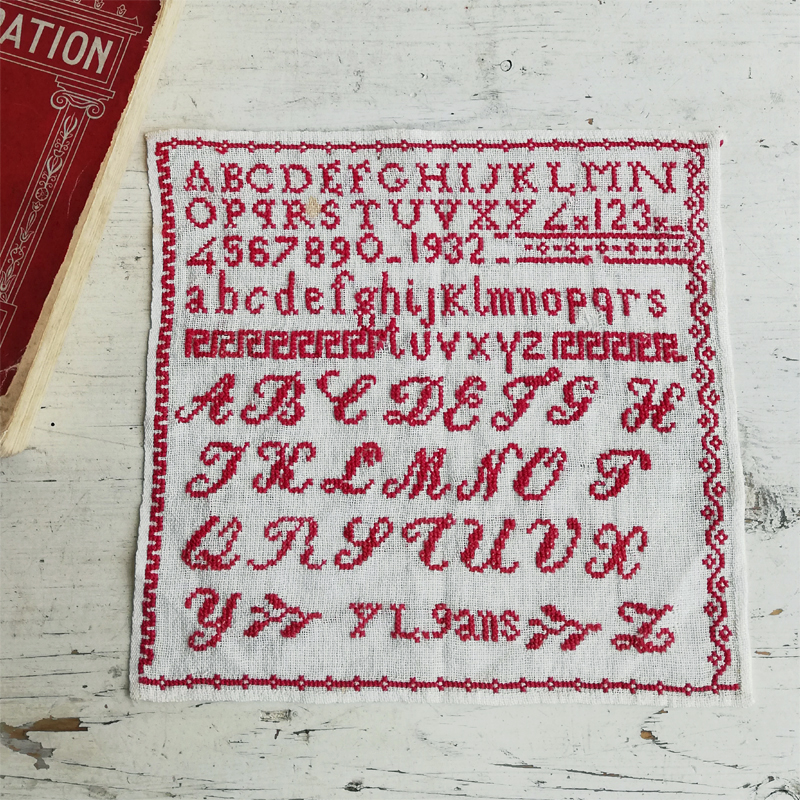 RATION
ABCDEFGHIJKLMN
OPqRSTUVXYZ 123
4567890 1932
abcdefghijklmnopqrs
tuvxyz
A B C D E F G H
J K L M N O P
Q R S T U V X
Y YL 9ans Z